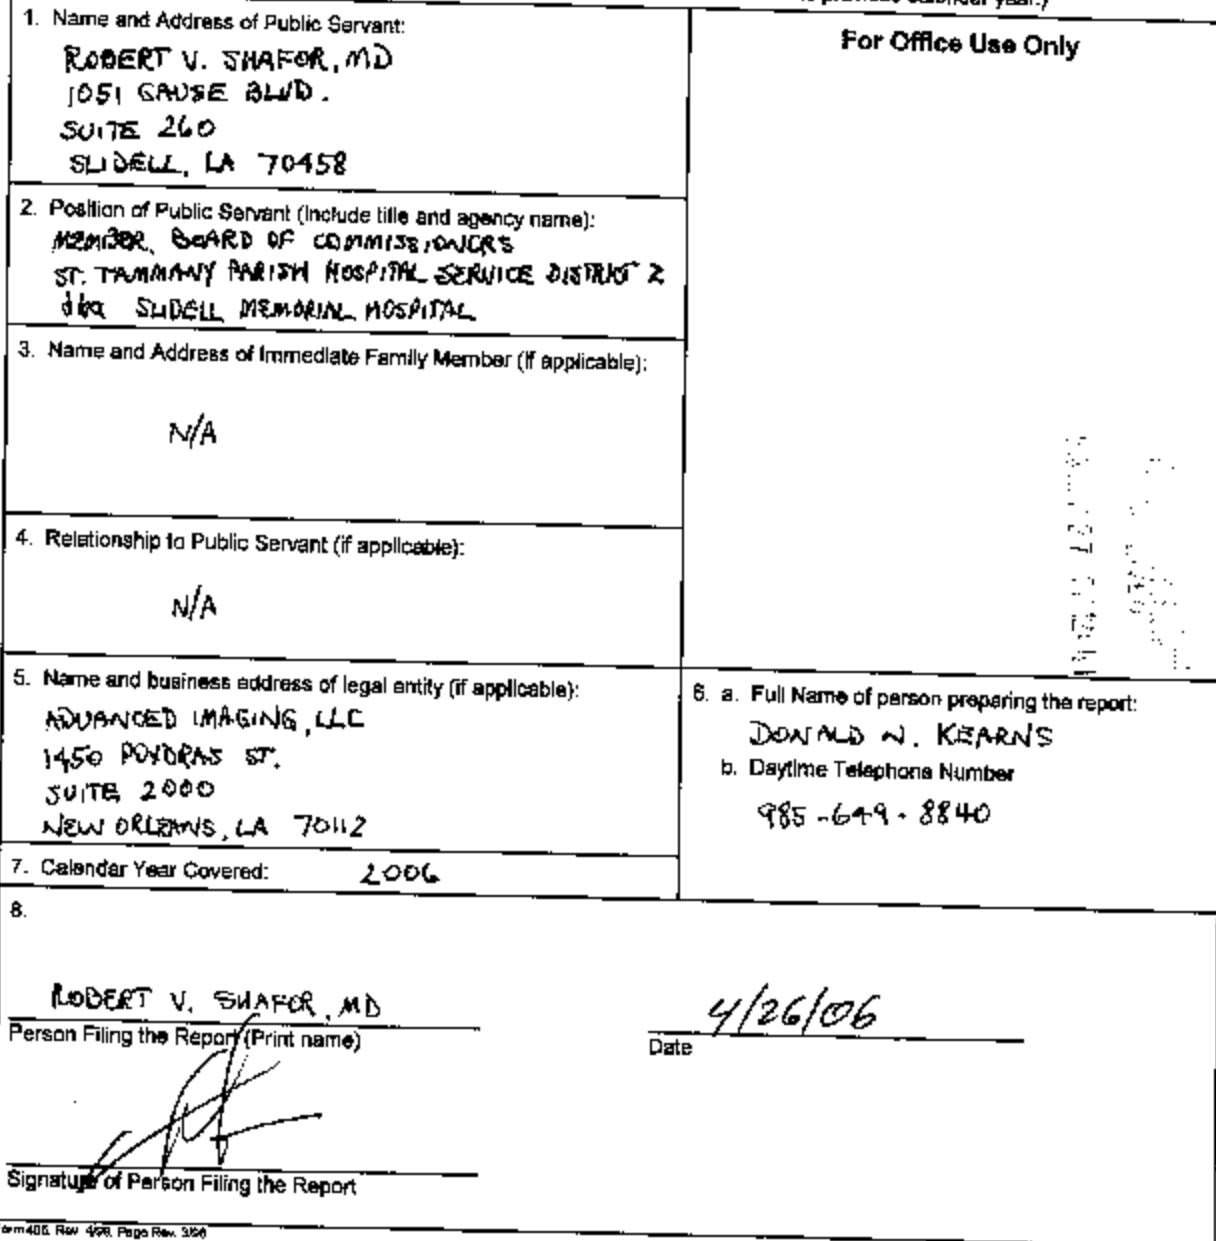 1. Name and Address of Public Servant:
ROBERT V. SHAFOR, MD
1051 GAUSE BLVD.
SUITE 260
SLIDELL, LA 70458
For Office Use Only
2. Position of Public Servant (include title and agency name):
MEMBER, BOARD OF COMMISSIONERS
ST. TAMMANY PARISH HOSPITAL SERVICE DISTRICT 2
dba SLIDELL MEMORIAL HOSPITAL
3. Name and Address of Immediate Family Member (if applicable):
N/A
4. Relationship to Public Servant (if applicable):
N/A
5. Name and business address of legal entity (if applicable):
ADVANCED IMAGING, LLC
1450 POYDRAS ST.
SUITE 2000
NEW ORLEANS, LA 70112
6. a. Full Name of person preparing the report:
DONALD N. KEARNS
b. Daytime Telephone Number
985-649-8840
7. Calendar Year Covered: 2006
8.
ROBERT V. SHAFOR, MD
Person Filing the Report (Print name)
4/26/06
Date
Signature of Person Filing the Report
Page Rev.